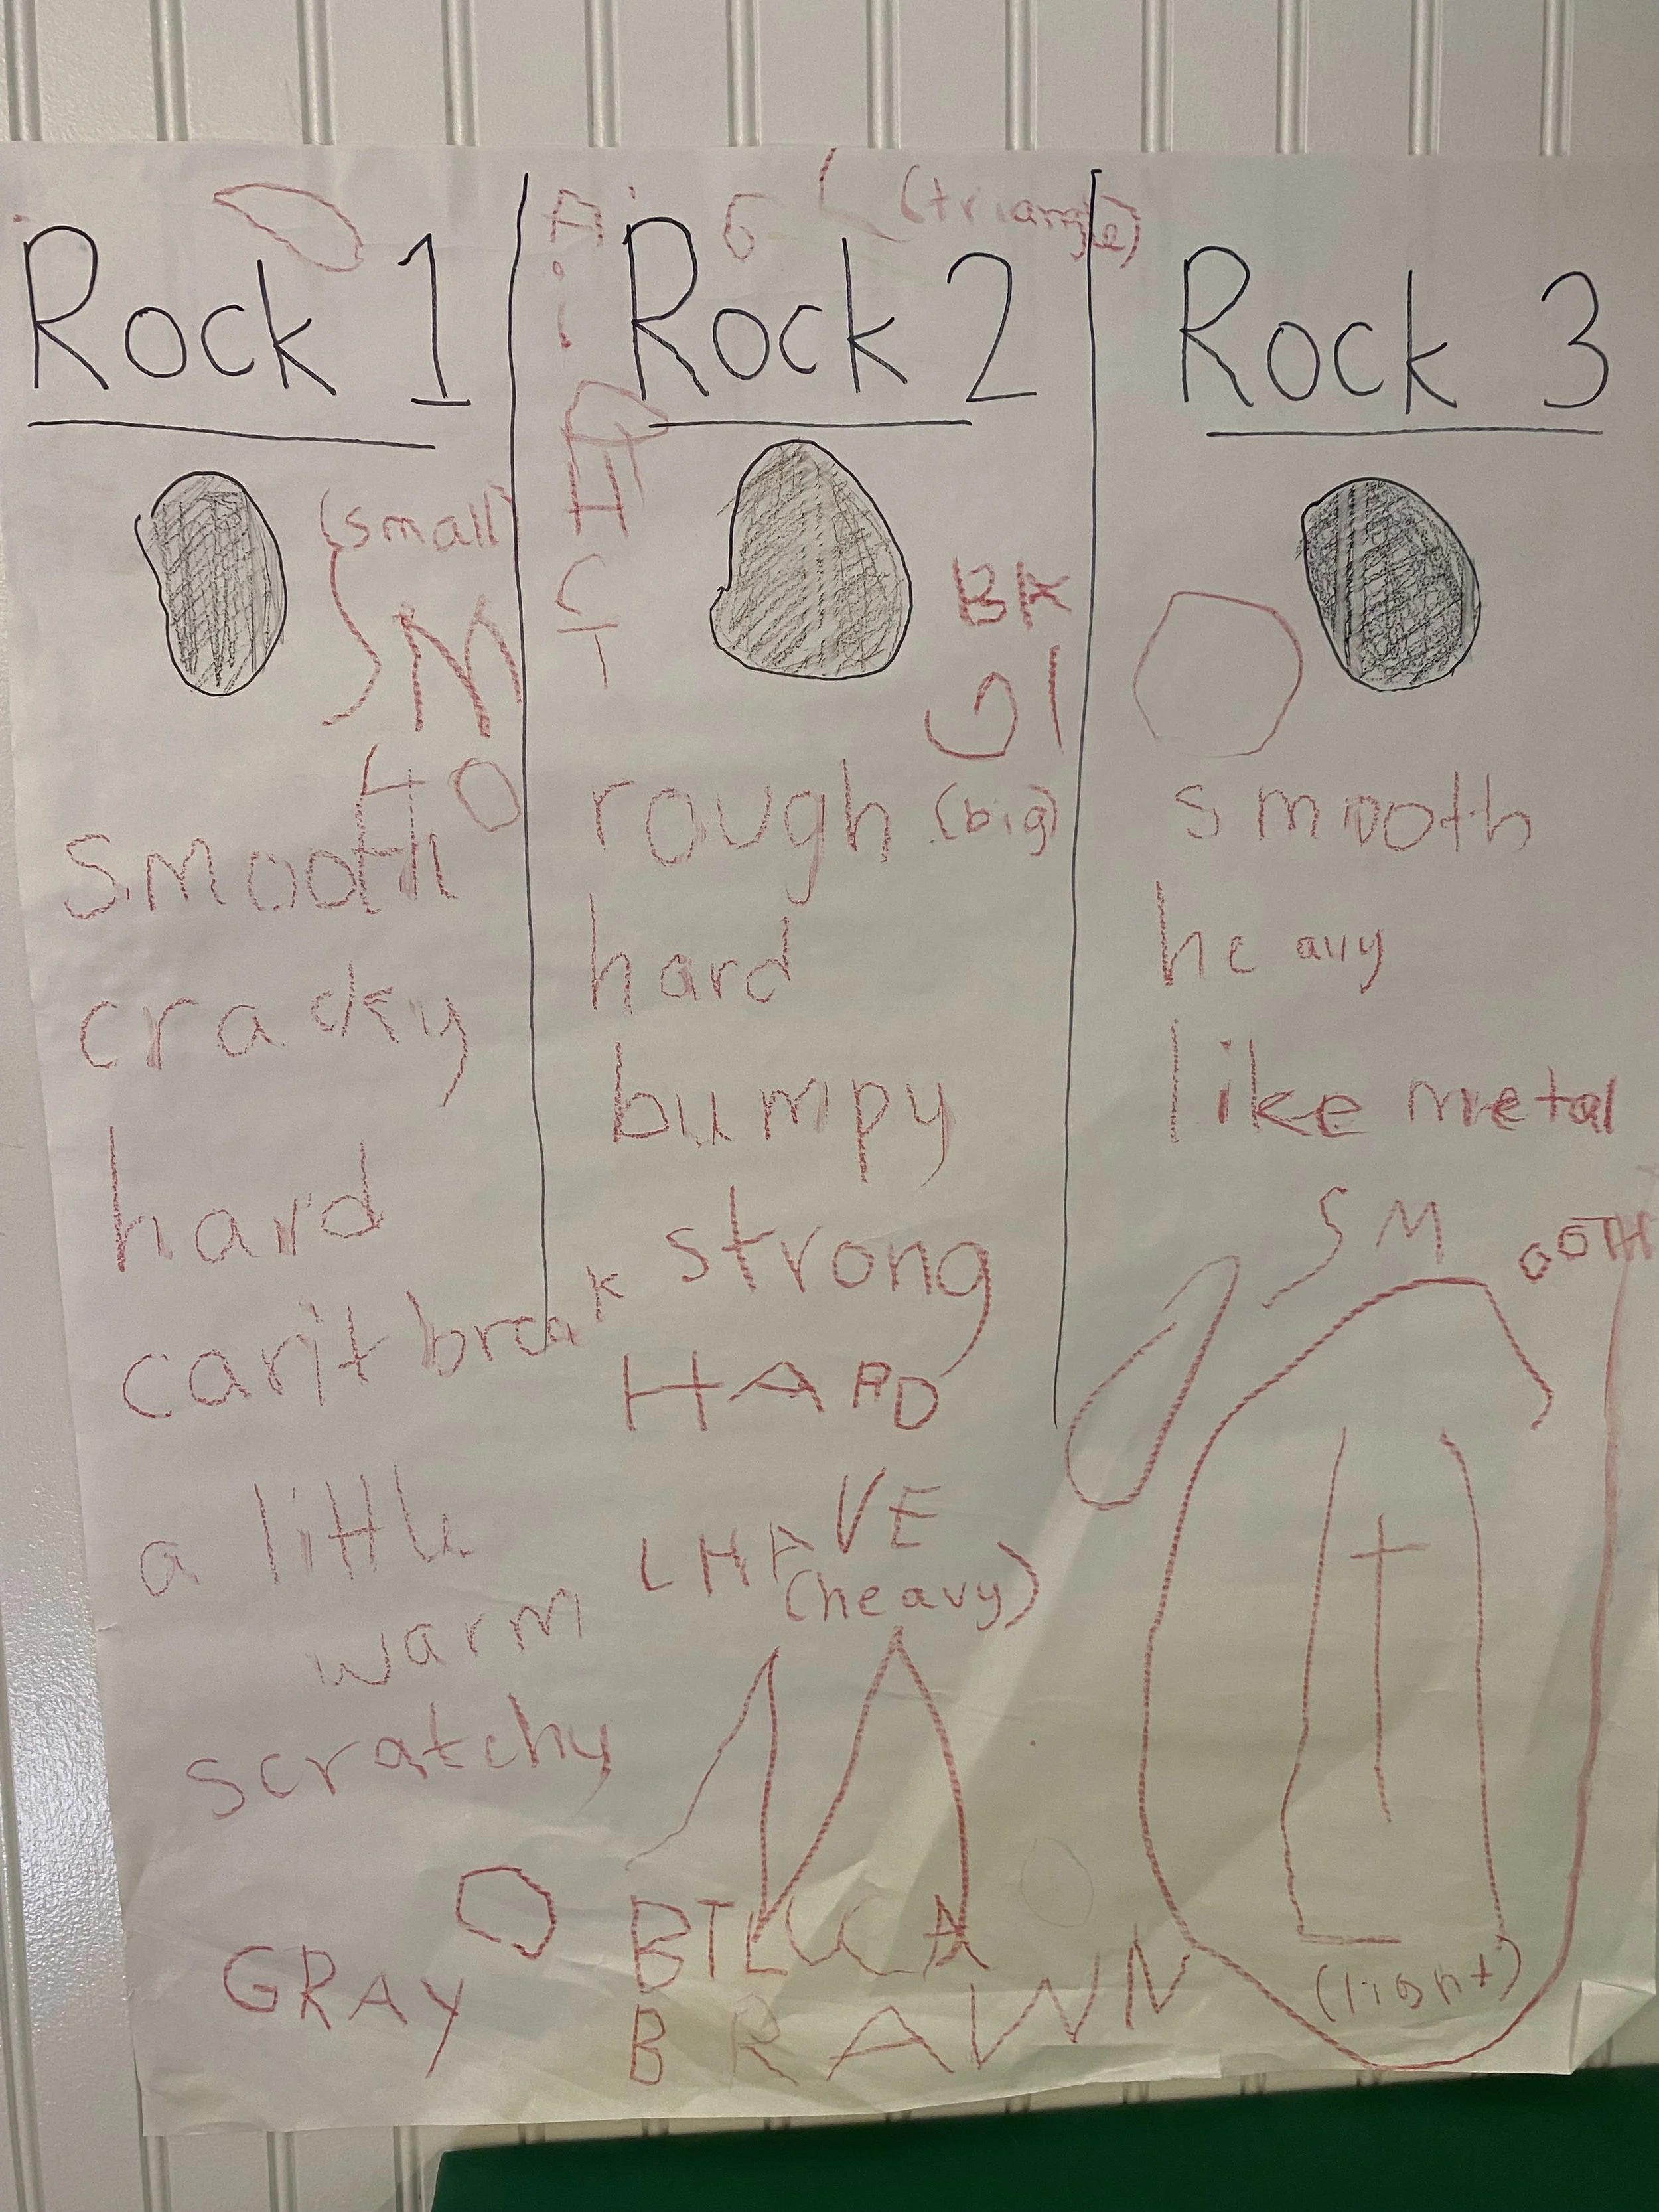 (triangle)
Rock 1
(small)
SM
smooth
cracky
hard
can't break
a little
warm
scratchy
GRAY
Rock 2
BK
GI
(big)
rough
hard
bumpy
strong
HARD
LHAVE
(heavy)
BTLCCA
BRAWN
Rock 3
smooth
heavy
like metal
SMOOTH
(light)